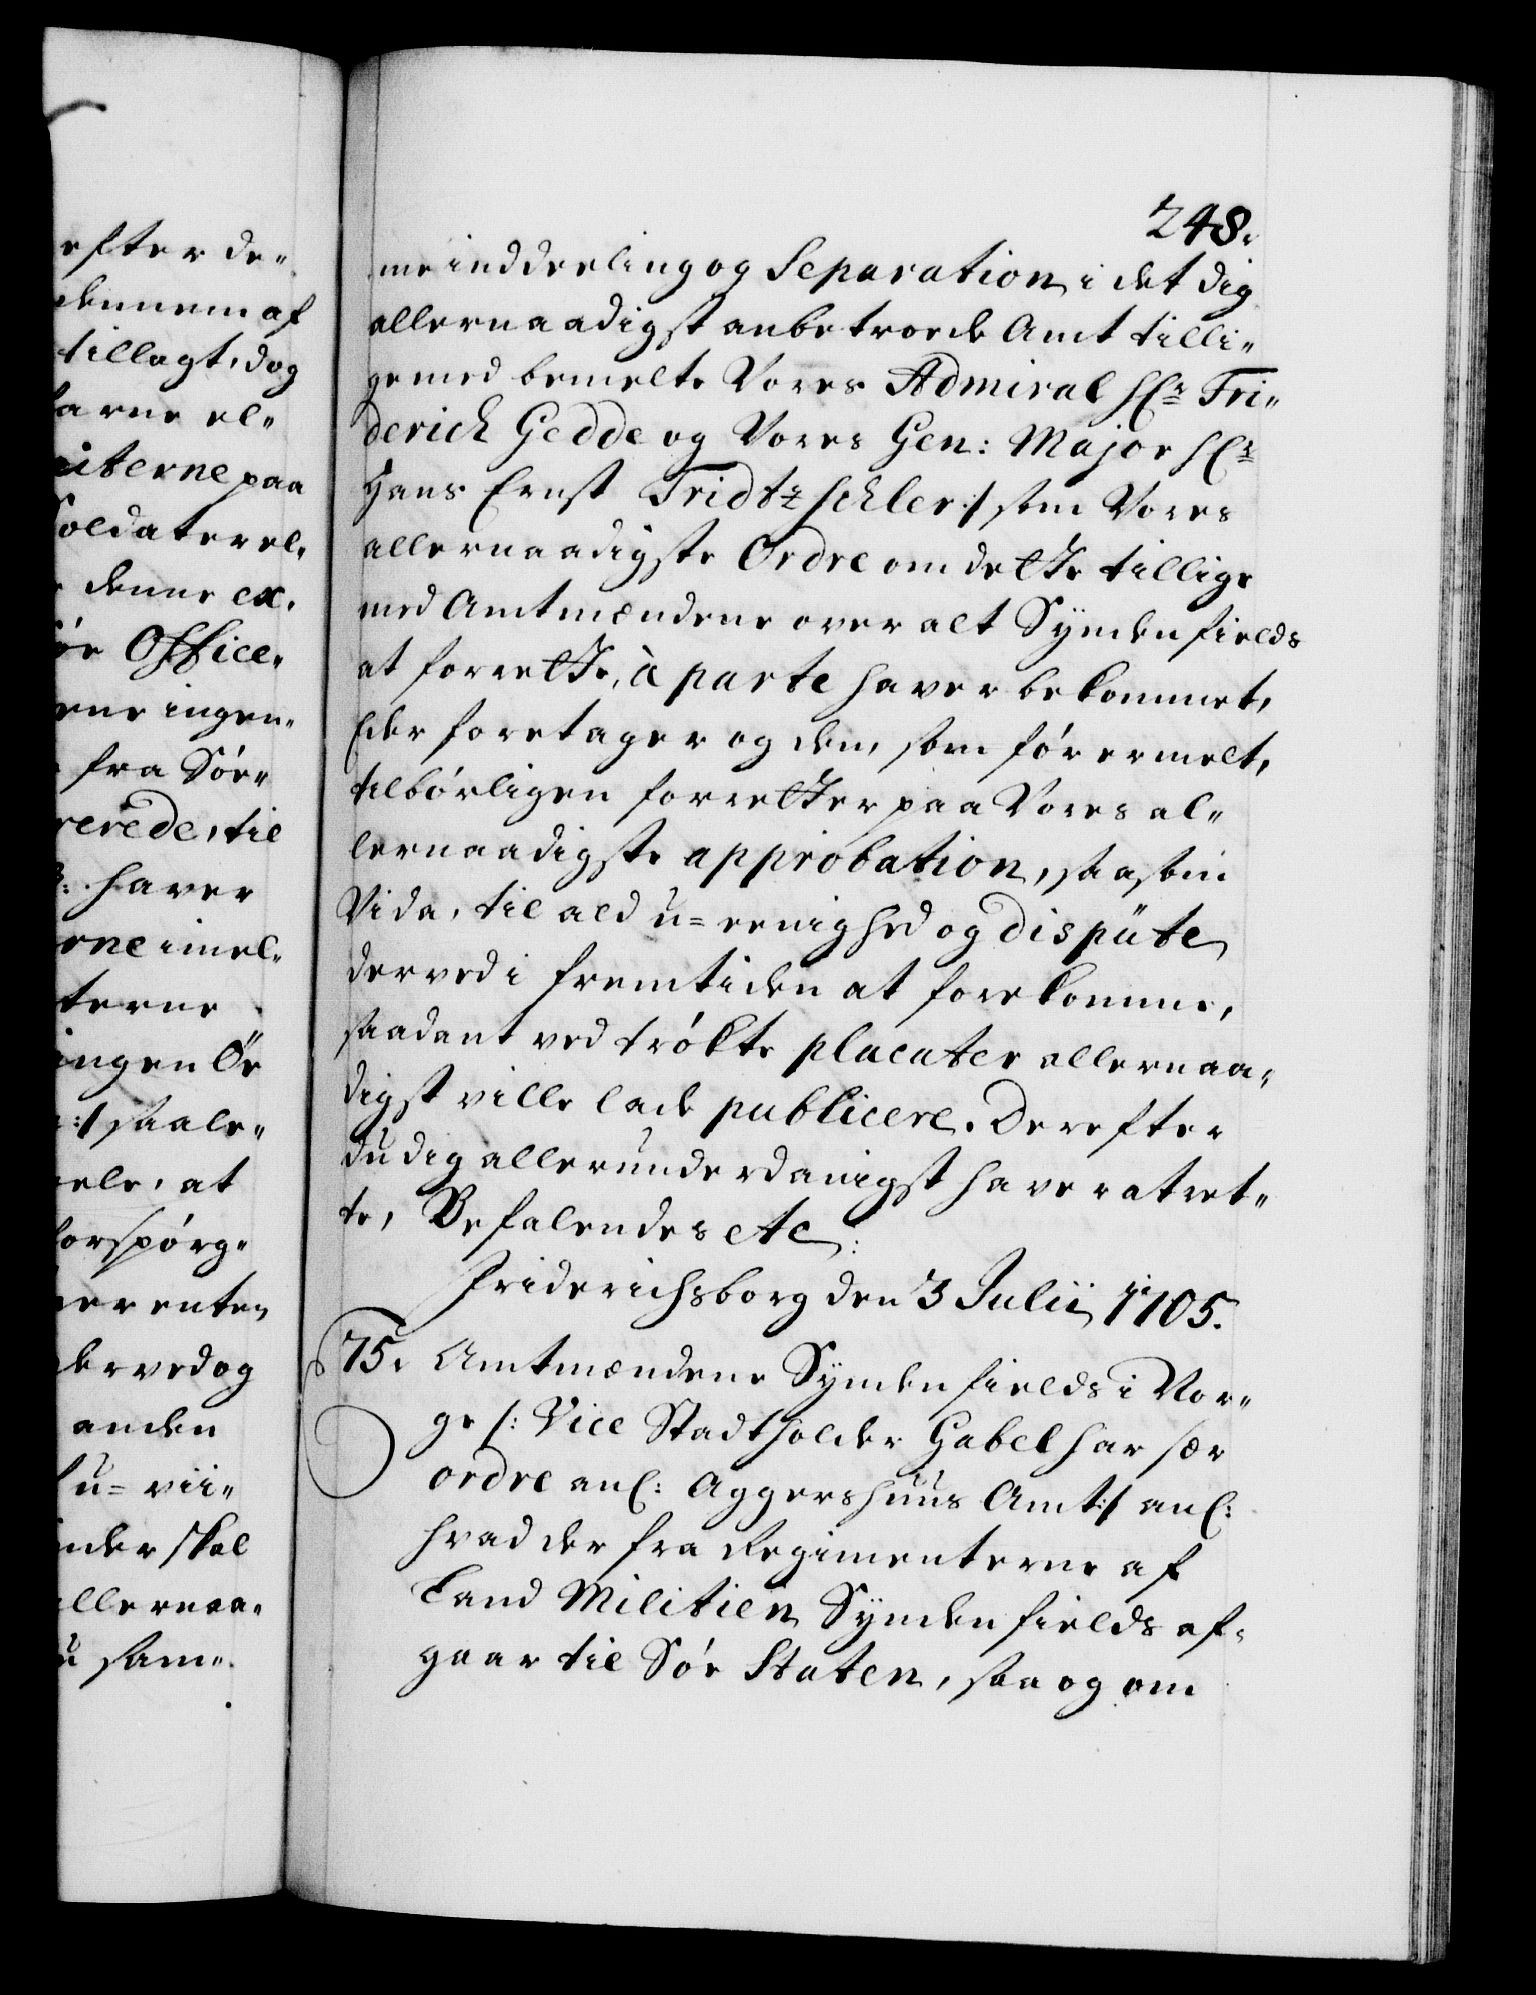 efter de„
dennem af
tillagt, dog
arne el„
iterne paa
Soldater el,
denne ex,
Office„
ene ingen„
fra Söe„
rerede, til
haver
rne imel„
terne
ingen Öe
:/ saale„
ele, at
forspörg„
er enten
derved og
anden
u= vii„
nder skal
allernaa„
u sam„
248.
me inddeeling og Separation i det dig
allernaadigst anbetroede Amt tilli„
gemed bemelte Vores Admiral Hr Fri„
derich Gedde og Vores Gen: Major Hr
Hans Ernst Tridtzschler :/ som Vores
allernaadigste Ordre om dette tillige
med Amtmændene over alt Synden fields
at forrette, à parte haver bekommet,
Eder foretager og dem, som för ermelt,
tilbörligen forretter paa Vores al„
lernaadigste approbation, saasom
Vi da, til ald u=eenighed og dispüte
derved i fremtiden at forekomme,
saadant ved trökte placater allernaa„
digst ville lade publicere. Derefter
du dig allerunderdanigst haver at ret„
te, Befalendes etc:
Friderichsborg den 3 Julii 1705.
75. Amtmændene Synden fields i Nor„
ge /: Vice Stadtholder Gabel har sær
ordre anl: Aggershuus Amt :/ anl:
hvad der fra Regimenterne af
Land Militien Synden fields af„
gaar til Söe Staten, saa og om